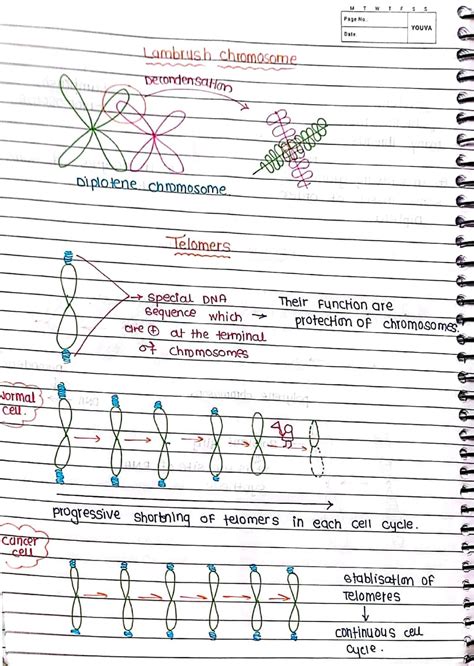 M T W T F S S
Page No.:
Date:
YOUVA
Lambrush chromosome
Decondensation
Diplotene chromosome.
Telomers
special DNA
sequence which
are ⊕ at the terminal
of chromosomes
Their function are
protection of chromosomes.
Normal
cell.
progressive shortning of telomers in each cell cycle.
Cancer
cell
etablisation of
Telomeres
continuous cell
cycle.